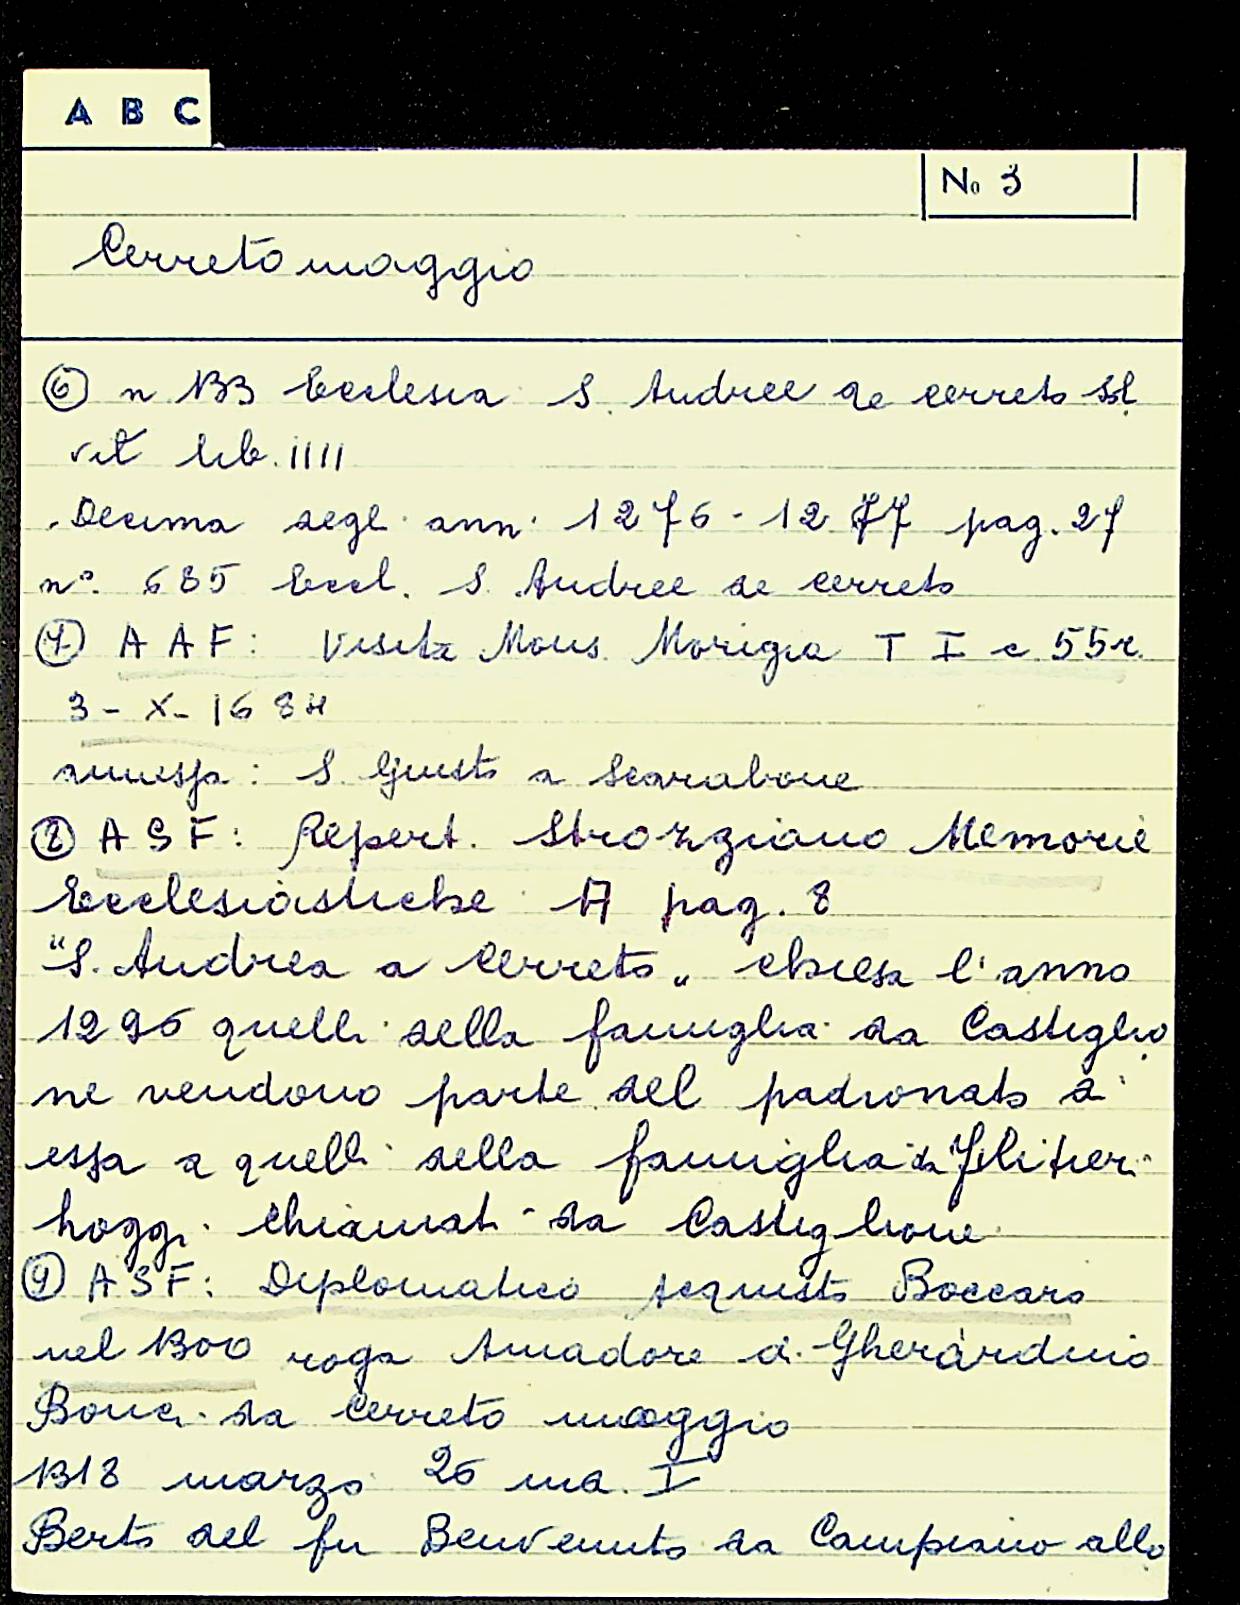 A B C
No 3
Cerreto maggio
⑥ n 133 Ecclesia S. Andree de cerreto sol
vit lib. IIII
Decima degl. ann. 1276-1277 pag. 27
n° 685 Eccl. S. Andree de cerreto
⑦ AAF: Visita Mons. Morigia T I c 55r.
3-X-1684
annessa: S. Giusto a Scarabone
⑧ ASF: Repert. Strozziano Memorie
Ecclesiastiche A pag. 8
"S. Andrea a Cerreto" chiesa l'anno
1296 quelli della famiglia da Castiglio
ne vendono parte del padronato di
essa a quelli della famiglia da
hoggi chiamati da Castiglione
⑨ ASF: Diplomatico Acquisto Boccaro
nel 1300 roga Amadore di Gherardino
da Cerreto maggio
1318 marzo 26 ind. I
Berto del fu Benvenuto da Campiano allo